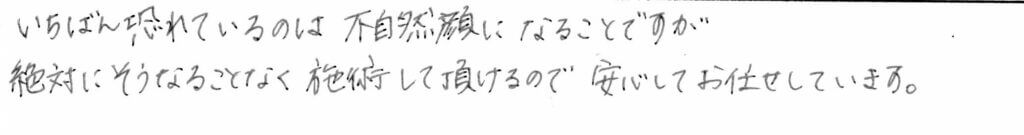 いちばん恐れているのは 不自然顔に なることですが
絶対にそうなることなく 施術して頂けるので 安心してお任せしています。